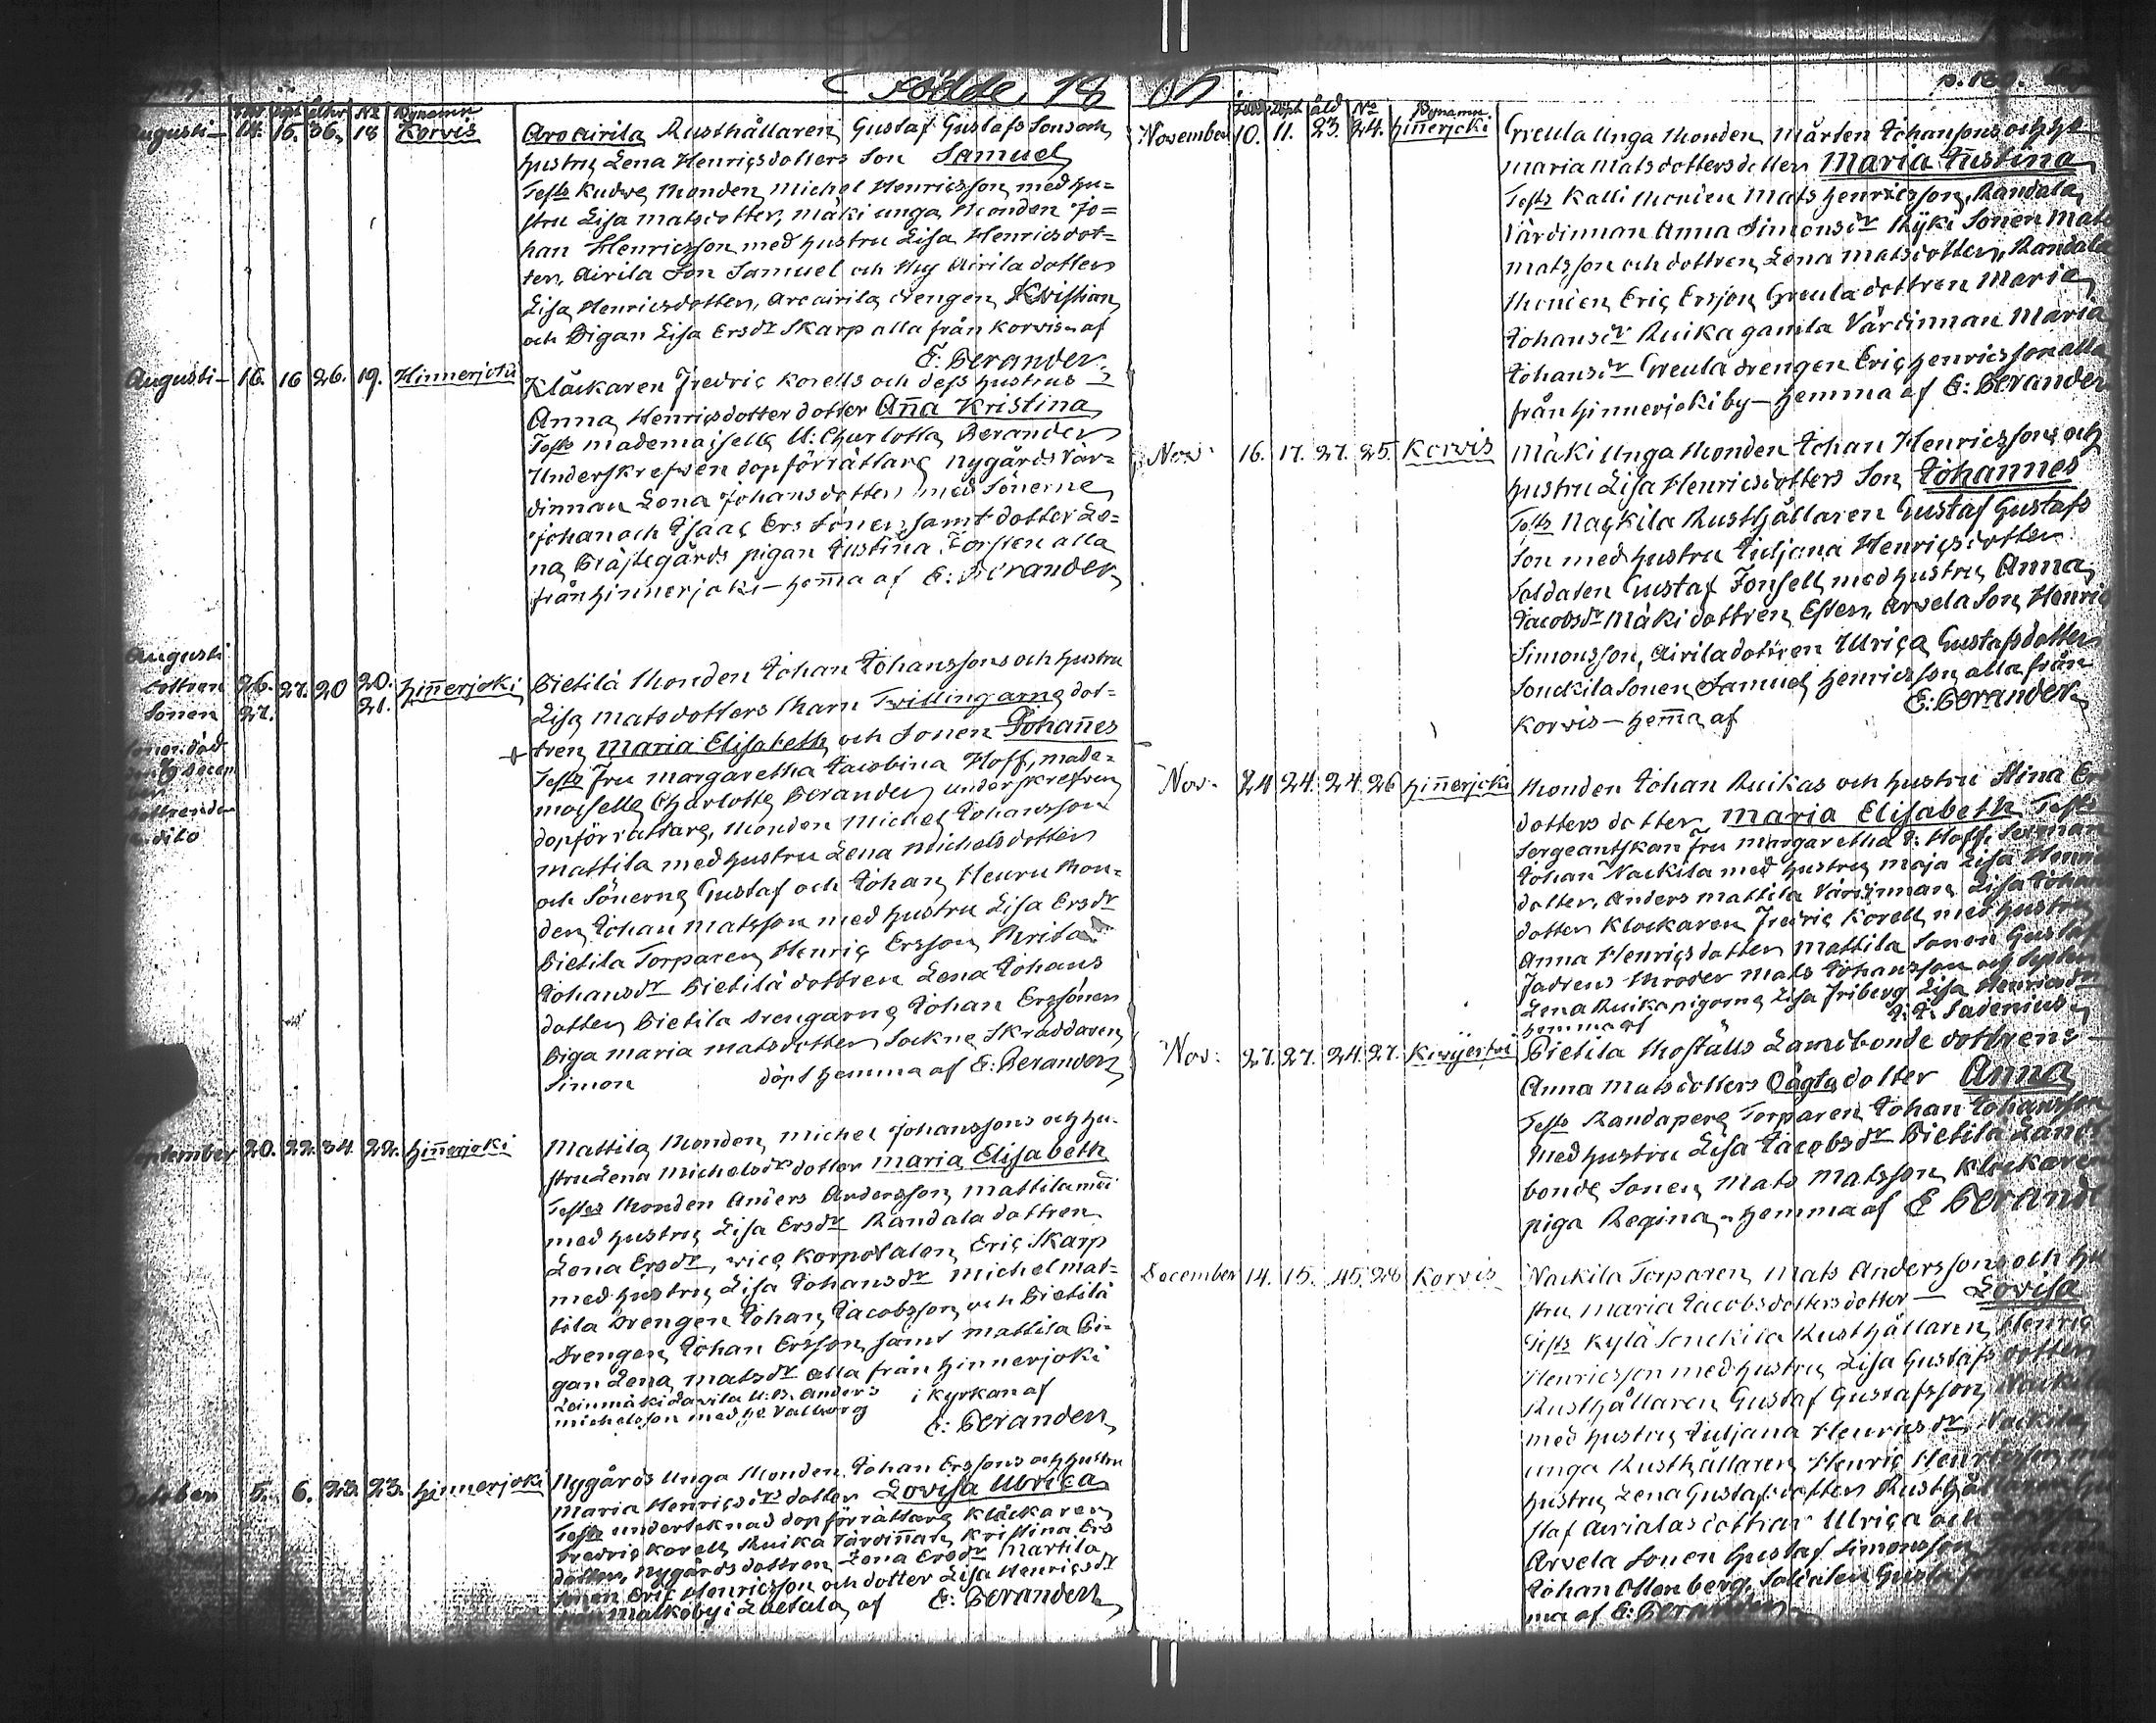 Födde 18 07
p. 187.
Född Döpt ålder No Bynamn
Augusti – 14. 15. 36. 18 Korvis
Aroairila Rusthållaren Gustaf Gustafs Sons och
hustru Lena Henricsdotters Son Samuel
Tests Kudva Bonden Michel Henricsson med hu=
stru Lisa Matsdotter, Mäki unga Bonden Jo=
han Henricsson med hustru Lisa Henricsdot=
ter, Airila Son Samuel och Airila dotter
Lisa Henricsdotter, Aroairila drengen Kristian
och Pigan Lisa Ersdr Skarp alla från Korvis af
E: Perander
Augusti – 16. 16 26. 19. Hinnerjoki
Klåckaren Fredric Korells och dess hustrus
Anna Henricsdotter dotter Anna Kristina
Tests mademoiselle U: Charlotta Perander
Underskrefven dopförrättare Nygårds Vär=
dinnan Lena Johansdotter med Sönerne
Johan och Isaac Ers Söner samt dotter Le=
na Präjtegårds pigan Justina Forsten alla
från Hinnerjoki – hemma af E: Perander
Augusti
dottren 26. 27. 20 20. Hinnerjoki
Sonen 27. 21.
Sonen död
den 8 decem
ber
dottren den
dito
Pietilä Bonden Johan Johanssons och hustru
Lisa Matsdotters Barn Twillingarne dot-
tren Maria Elisabeth och Sonen Johannes
Tests Fru Margaretha Jacobina Hoff, made=
moiselle Charlotta Perander underskrefven
dopförrättare, Bonden Michel Johansson
Mattila med hustru Lena Michelsdotter
och Sönerne Gustaf och Johan, Heuru Bon=
den Johan Matsson med hustru Lisa Ersdr
Pietila Torparen Henric Ersson Brita
Johansdr Pietilä dottren Lena Johans
dotter Pietila drengarne Johan Erssöner
Piga Maria Matsdotter Sockne Skräddaren
Simon döpt hemma af E: Perander
September 20. 22. 34. 22. Hinnerjoki
Mattila Bonden Michel Johanssons och hu-
stru Lena Michelsdr dotter Maria Elisabeth
Testes Bonden Anders Andersson Mattila
med hustru Lisa Ersdr Randala dottren
Lena Ersdr, vice Korporalen Eric Skarp
med hustru Lisa Johansdr Michel Mat=
tila drengen Johan Jacobsson och Pietilä
drengen Johan Ersson samt Mattila Pi=
gan Lena Matsdr alla från Hinnerjoki
Leinmäki Lavila U.B. Anders i kyrkan af
Michelsson med hu Valborg
E: Perander
October 5. 6. 23. 23. Hinnerjoki
Nygårds Unga Bonden Johan Erssons och hustru
Maria Henricsdrs dotter Lovisa Ulrica
Tests underteknad dopförrättare Klåckaren
Fredric Korell Ruika Värdinnan Kristina Ers
dotter, Nygårds dottren Lena Ersdr Martila
Sonen Eric Henricsson och dotter Lisa Henricsdr
från Malko by i Laetala, af E: Perander
Född Döpt åld No Bynamn.
November 10. 11. 23. 24. Hinnerjoki
Greula Unga Bonden Mårten Johansons och hu
Maria Matsdotters dotter Maria Justina
Tests Kalli Bonden Mats Henricsson, Randala
Värdinnan Anna Simonsdr Ryki Sonen Mats
Matsson och dottren Lena Matsdotter, Randala
Bonden Eric Ersson Greula dottren Maria
Johansdr Ruika gamla Värdinnan Maria
Johansdr Greula drengen Eric Henricsson alla
från Hinnerjoki by – hemma af E: Perander
Nov. 16. 17. 27. 25. Korvis
Mäki Unga Bonden Johan Henricssons och
hustru Lisa Henricsdotters Son Johannes
Tests Nackila Rusthållaren Gustaf Gustafs
Son med hustru Juljana Henricsdotter
Soldaten Gustaf Fonsell med hustru Anna
Jacobsdr Mäki dottren Ester, Arvela Son Henric
Simonsson, Airila dottren Ulrica Gustafsdotter
Sonckila Sonen Samuel Henricsson alla från
Korvis – hemma af E: Perander
Nov. 24 24. 24. 26 Hinnerjoki
Bonden Johan Ruikas och hustru Stina Ers
dotters dotter Maria Elisabeth Tests
Sergeantskan Fru Margaretha J: Hoff,
Johan Nackila med hustru Maja Lisa
dotter, Anders Mattila Värdinnan Lisa
dotter Klockaren Fredric Korell med hustru
Anna Henricsdotter Mattila Sonen Gustaf
Fadrens Broder Mats Johansson och
Lena Ruika pigorne Lisa Friberg Lisa Henricsdr
hemma af J. J. Sadenius
Nov: 27. 27. 24. 27. Kiwijerfvi
Pietila Boställs Lanibonde dottrens
Anna Matsdotters Oägta dotter Anna
Tests Randapere Torparen Johan Johansson
med hustru Lisa Jacobsdr Pietila Land
bonde Sonen Mats Matsson, Klockaren
piga Regina – hemma af E Perander
December 14. 15. 45. 28 Korvis
Nackila Torparen Mats Anderssons och hu
stru Maria Jacobsdotters dotter – Lovisa
Tests Kylä Sonckila Rusthållaren Henric
Henricsson med hustru Lisa Gustafsdotter
Rusthållaren Gustaf Gustafsson Nackila
med hustru Juljana Henricsdr, Nackila
unga Rusthållaren Henric Henricsson
hustru Lena Gustafsdotter Rusthållaren Gu
staf Airilas döttrar Ulrica och
Arvela Sonen Gustaf Simonsson
Johan Ollenberg, Soldaten Gustaf
ma af E: Perander